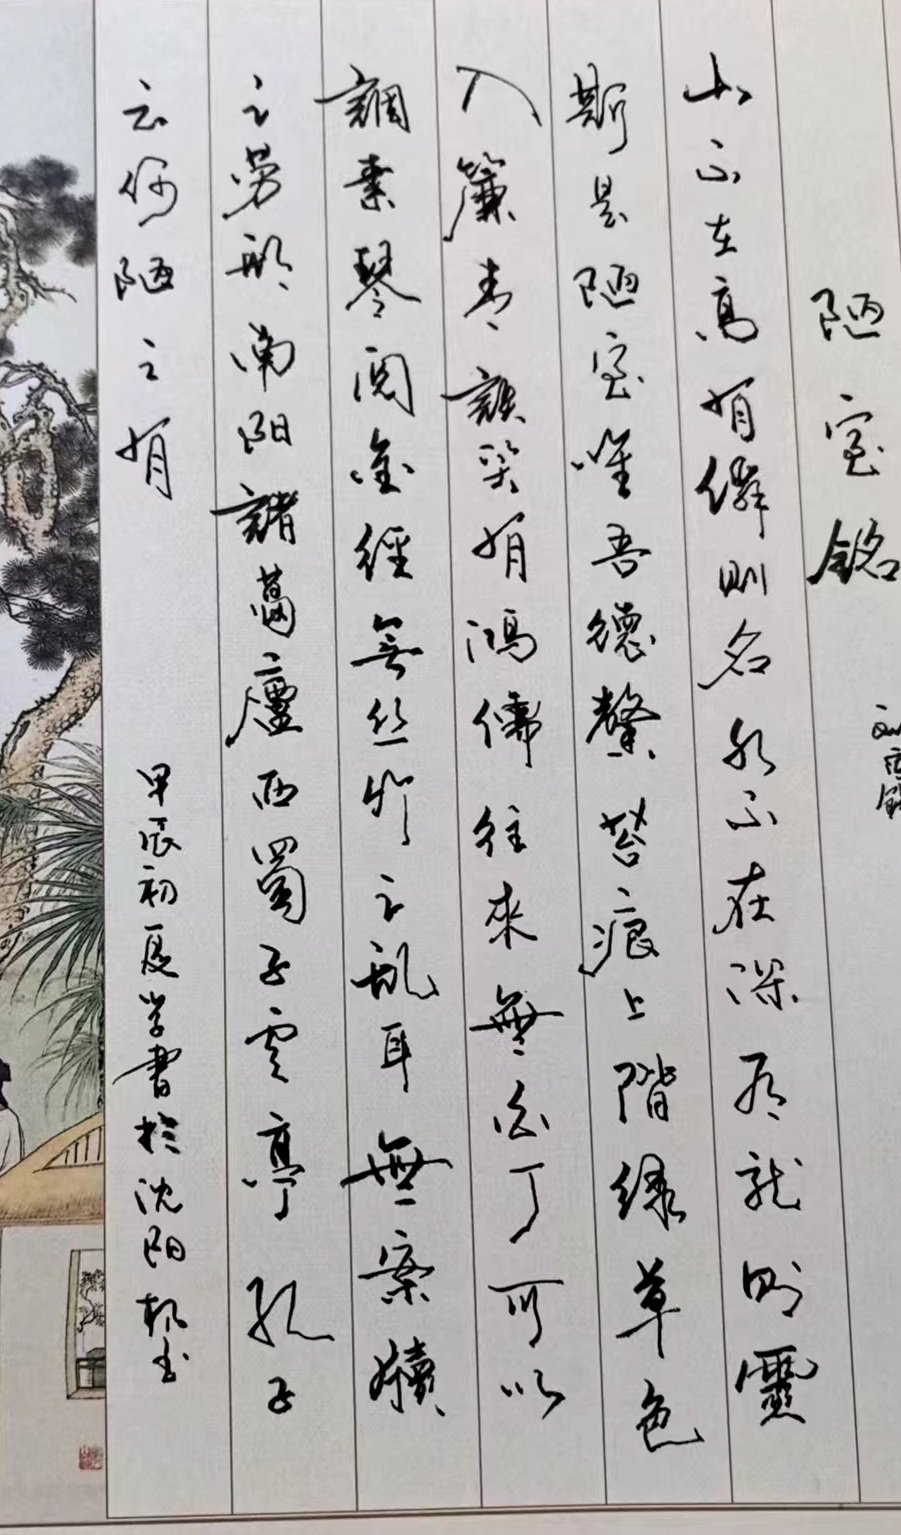 陋室銘
刘禹錫
山不在高有僊則名水不在深有龙則靈
斯是陋室唯吾德馨苔痕上階緑草色
入簾青談笑有鴻儒往來無白丁可以
調素琴閲金經無丝竹之乱耳無案牘
之劳形南阳諸葛廬西蜀子雲亭孔子
云何陋之有
甲辰初夏学書於沈阳